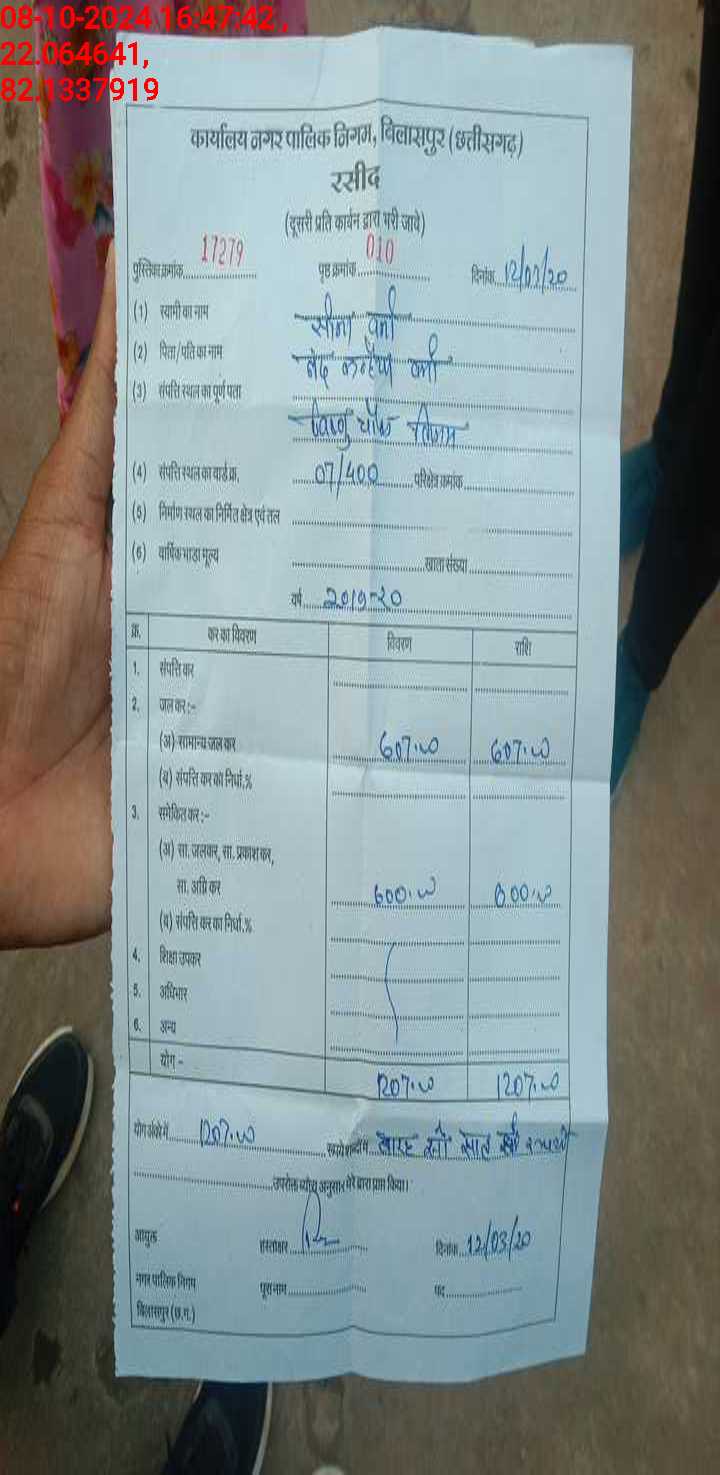 08-10-2024 16:47:42 ,
22.064641,
82.1337919
कार्यालय नगर पालिक निगम, बिलासपुर (छत्तीसगढ़)
रसीद
(दूसरी प्रति कार्बन द्वारा भरी जावे)
पुस्तिका क्रमांक 17279 पृष्ठ क्रमांक 010 दिनांक 12/03/20
(1) स्वामी का नाम वर्मा
(2) पिता/पति का नाम नंद कन्हैया वर्मा
(3) संपत्ति स्थल का पूर्ण पता
चौक
(4) संपत्ति स्थल का वार्ड क्र. 07/400 परिक्षेत्र क्रमांक
(5) निर्माण स्थल का निर्मित क्षेत्र एवं तल
(6) वार्षिक भाड़ा मूल्य खाता संख्या
वर्ष 2019-20
क्र. कर का विवरण विवरण राशि
1. संपत्ति कर
2. जल कर :-
(अ) सामान्य जल कर 607.00 607.00
(ब) संपत्ति कर का निर्धा.%
3. समेकित कर :-
(अ) सा. जलकर, सा. प्रकाश कर,
सा. अग्नि कर 600.00 600.00
(ब) संपत्ति कर का निर्धा.%
4. शिक्षा उपकर
5. अधिभार
6. अन्य
योग - 1207.00 1207.00
योग अंकों में 1207.00 रूपये शब्दों में बारह सौ सात
उपरोक्त ब्यौरा अनुसार मेरे द्वारा प्राप्त किया।
आयुक्त हस्ताक्षर दिनांक 12/03/20
नगर पालिक निगम पूरा नाम पद
बिलासपुर (छ.ग.)